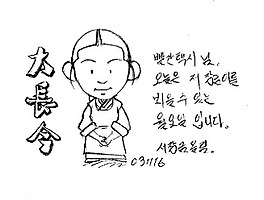 大長今
빨간택시 님,
오늘은 저 장금이를
수 있는
월요일 입니다.
서장금올림.
031116